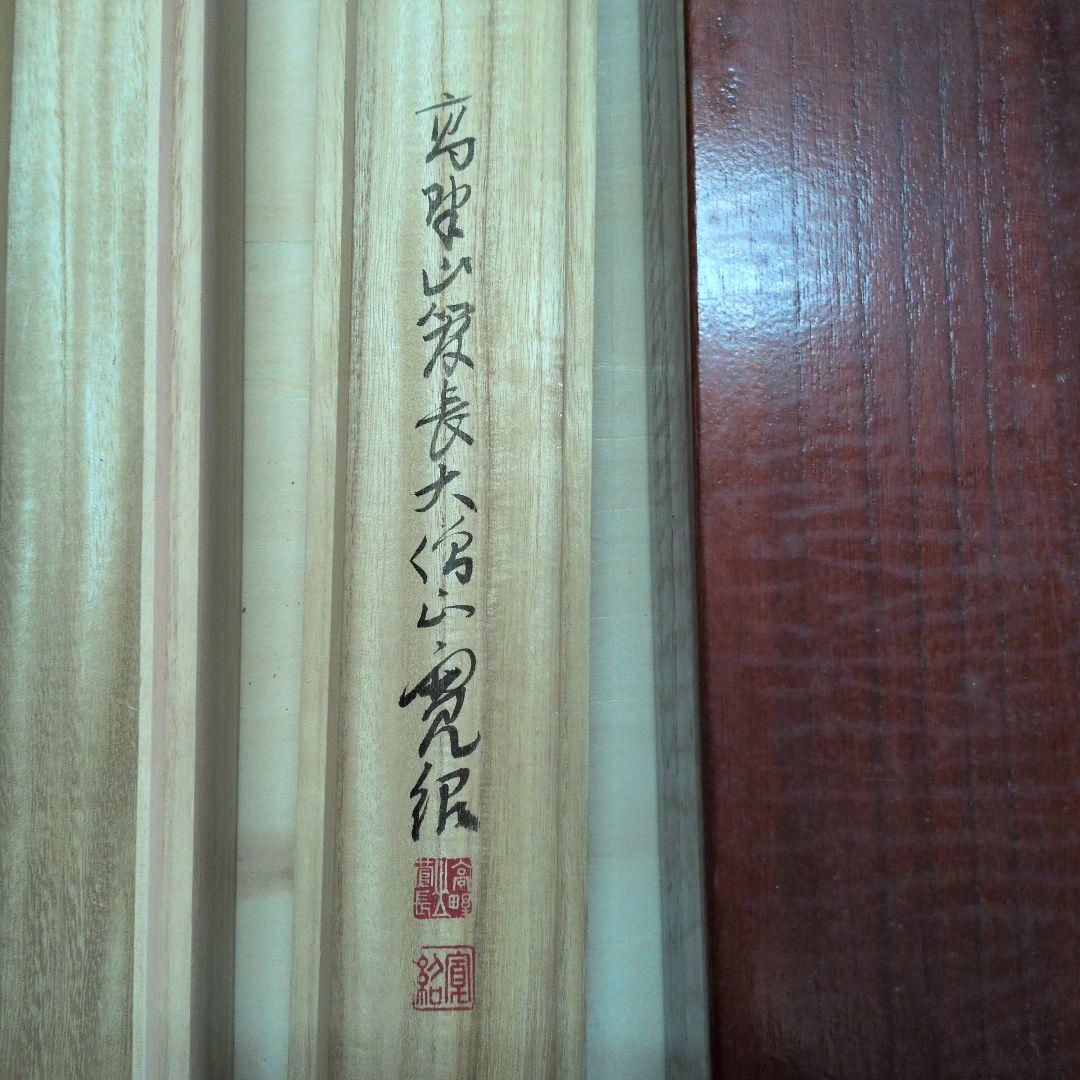 高野山管長大僧正寛紹
高野山管長
寛紹